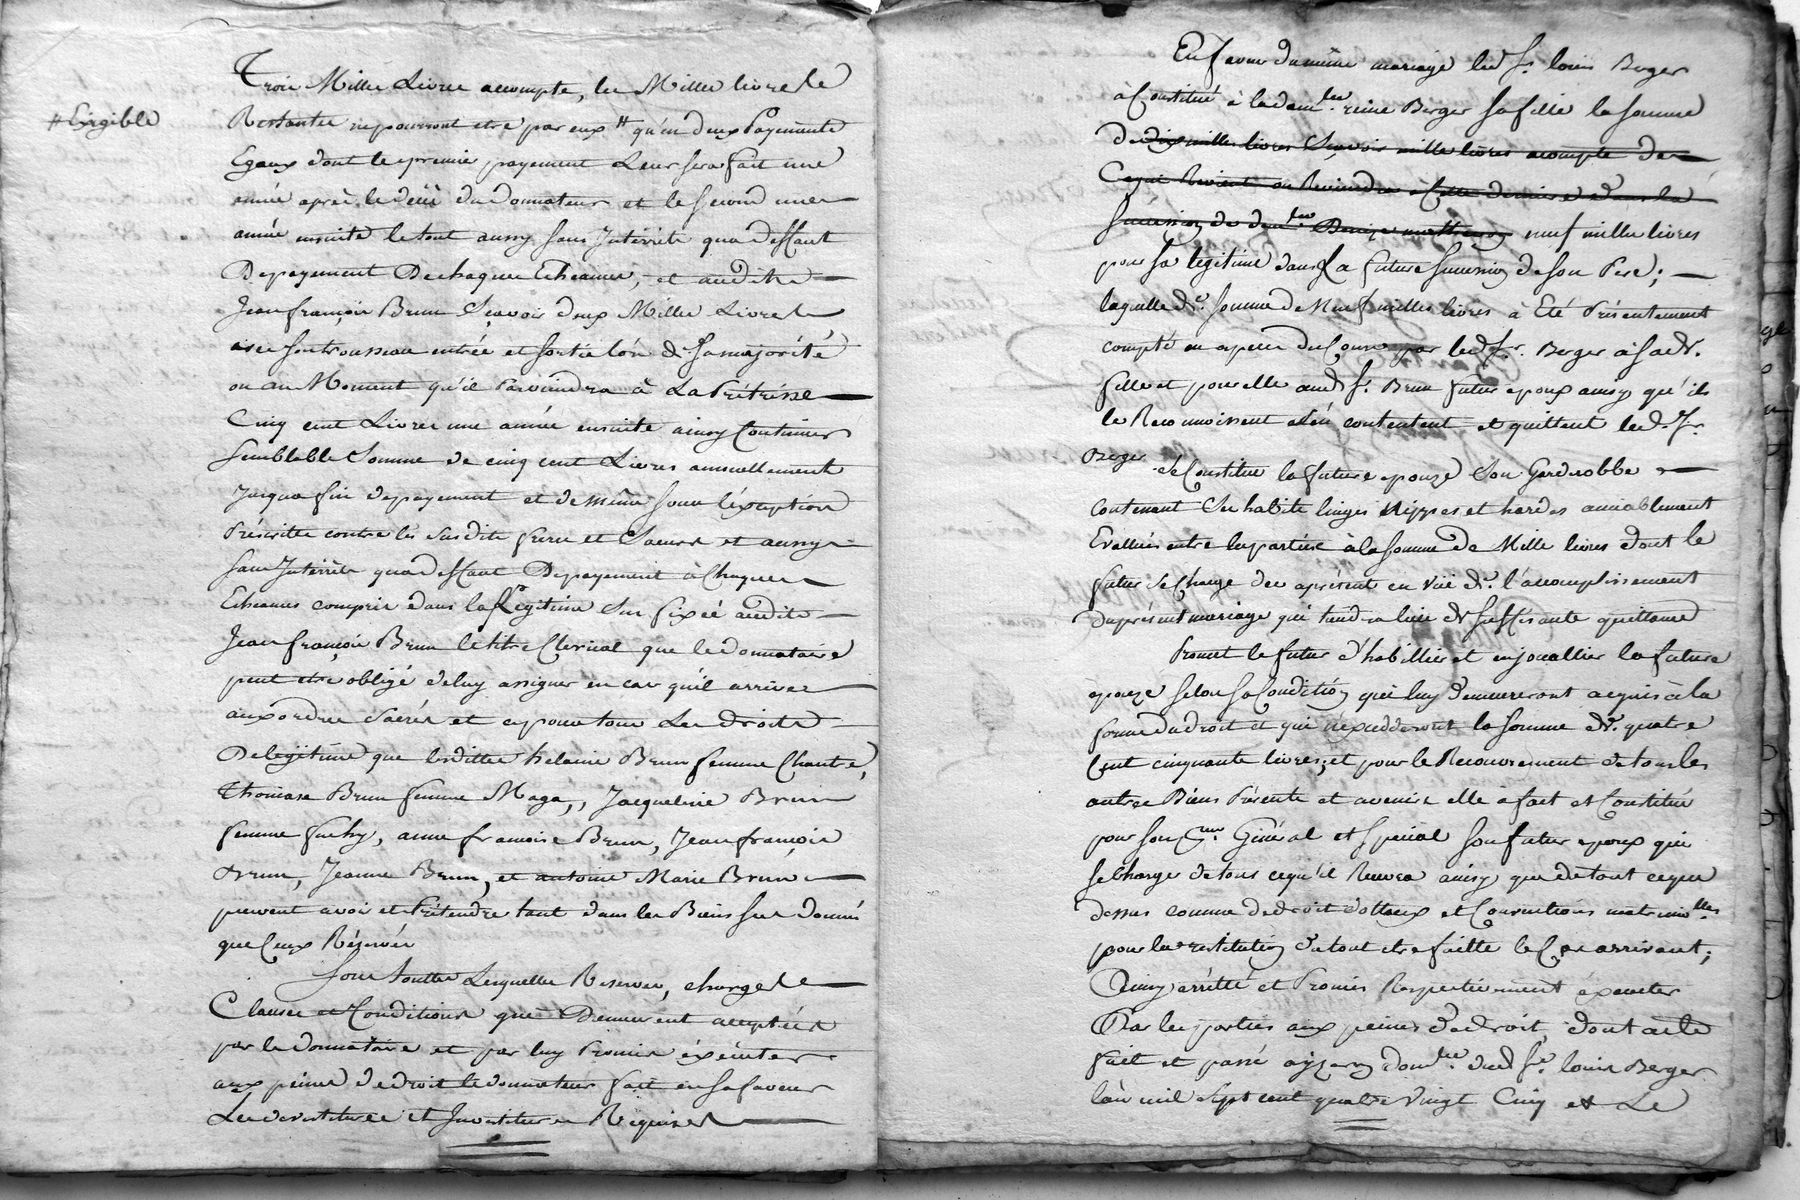 Trois Mille Livres accompte, les Mille livres
# Exigible
Restantes ne pourront etre par eux # qu'en deux Payements
Egaux dont le premier payement Leur sera fait une
année après le décès du donnateur et le second une
année ensuite le tout aussy sans Intérrèts qua deffaut
De payement De chaque Echeance, et audit
Jean françois Brun Sçavoir deux Mille Livres
avec son trousseau entrée et sortie lors de sa majorité
ou au Moment qu'il Parviendra à La Prétrisse
Cinq cent Livres une année ensuite ainsy Continuer
Semblable Somme de cinq cent Livres annuellement
Jusqua fin de payement et de même sous l'exception
Préscritte contre les susdits freres et Soeurs et aussy
sans Intérrèts qua deffaut De payement à Chaque
Echeances compris dans la Légitime Sus fixée audit
Jean françois Brun le titre Clerical que le donnataire
peut etre obligé de luy assigner en cas qu'il arrive
aux ordres Sacrés et ce pour tous Les droits
De légitime que lesdittes helaine Brun femme Chautre,
Thomase Brun femme Maga, Jacqueline Brun
femme fuchy, anne francoise Brun, Jean françois
Brun, Jeanne Brun, et antoine Marie Brun
peuvent avoir et Prétendre tant dans les Biens sus donnés
que Ceux Réservés
Sous toutes Lesquelles Reserves, charges
Clauses et Conditions que Demeurent acceptées
par le donnataire et par luy Promis éxécuter
aux peines de droit le donnateur fait en sa faveur
Les devestitures et Investitures Requises
En faveur du même mariage led Sr. louis Berger
à Constitué à lade damlle. reine Berger sa fille la somme
de dix milles livres Sçavoir mille livres acompte de
Ce qui Revient ou Reviendra à Cette derniere dans la
succession de demlle neuf milles livres
pour sa legitime dans la future succession de son Pere;
laquelle de. somme de Neuf milles livres à Eté Présentement
compté en especes du Cours par led Sr. Berger à sa de.
fille et pour elle aud Sr. Brun futur epoux ainsy qu'ils
le Reconnoissent s'en contentent et quittent led. Sr.
Berger
Se Constitue la future epouze Son Garderobbe
contenant Ses habits linges Nippes et hardes amiablement
Evallués entre les parties à la somme de Mille livres dont le
futur se Charge des apresent en vüe de. l'accomplissement
du présent mariage qui tiendra lieu de suffisante quittance
Promet le futur d'habillier et enjouallier la future
epouze selon sa Condition qui luy demeureront acquis à la
forme du droit et qui n'excedderont la somme de. quatre
Cent cinquante livres; et pour le Recouvrement de tous les
autres Biens Présents et avenirs elle à fait et Constitué
pour son Général et Special son futur epoux qui
se Charge de tous ce qu'il Recevra ainsy que de tout ce que
dessus comme de droit dottaux et Conventions matrimolles
pour la restitution du tout etre faitte le Cas arrivant;
Ainsy arrêtté et Promis Respectivement éxécuter
Par les parties aux peines de droit, dont acte
fait et passé domlle. dud Sr. louis Berger
l'an mil Sept cent quatre vingt Cinq et Le